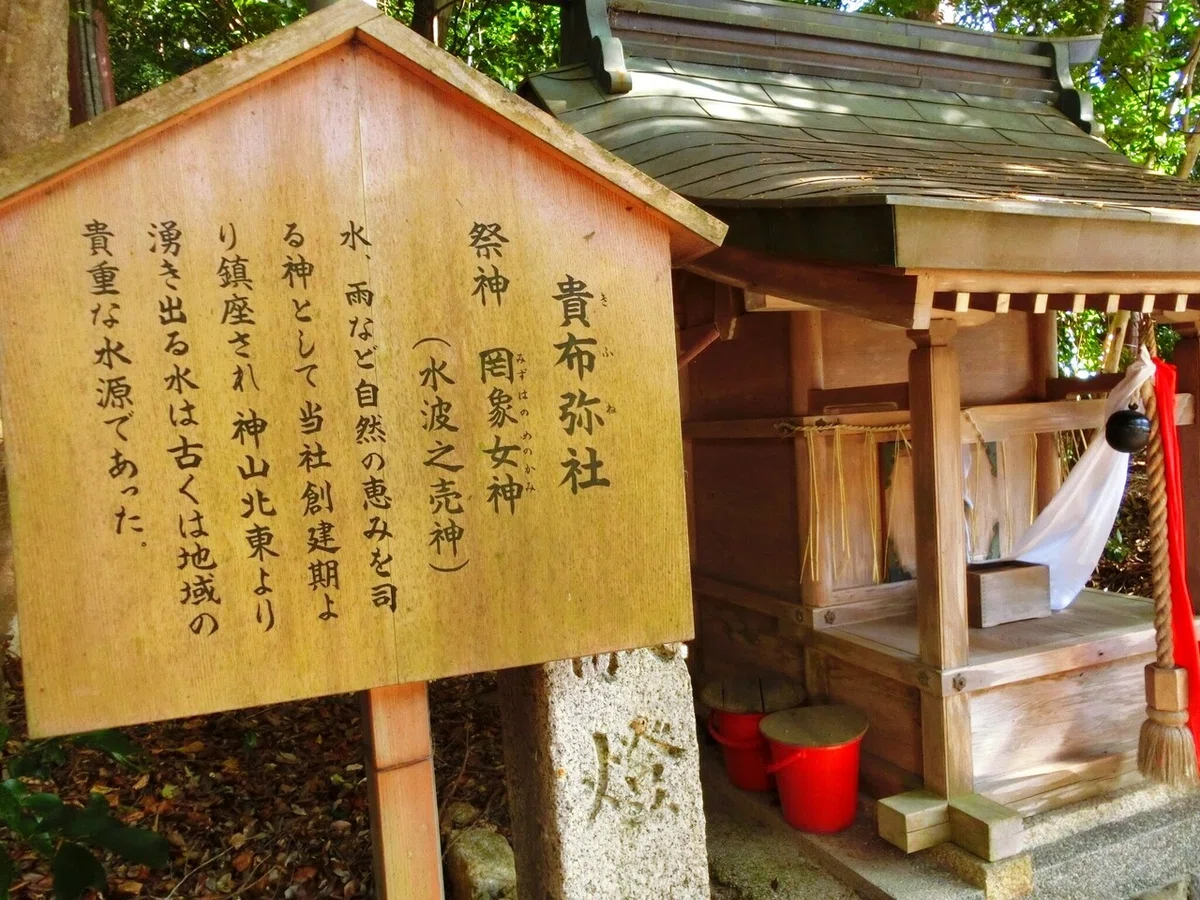 貴布弥社
きふね
祭神 罔象女神
みずはのめのかみ
（水波之売神）
水、雨など自然の恵みを司
る神として当社創建期よ
り鎮座され 神山北東より
湧き出る水は古くは地域の
貴重な水源であった。
燈